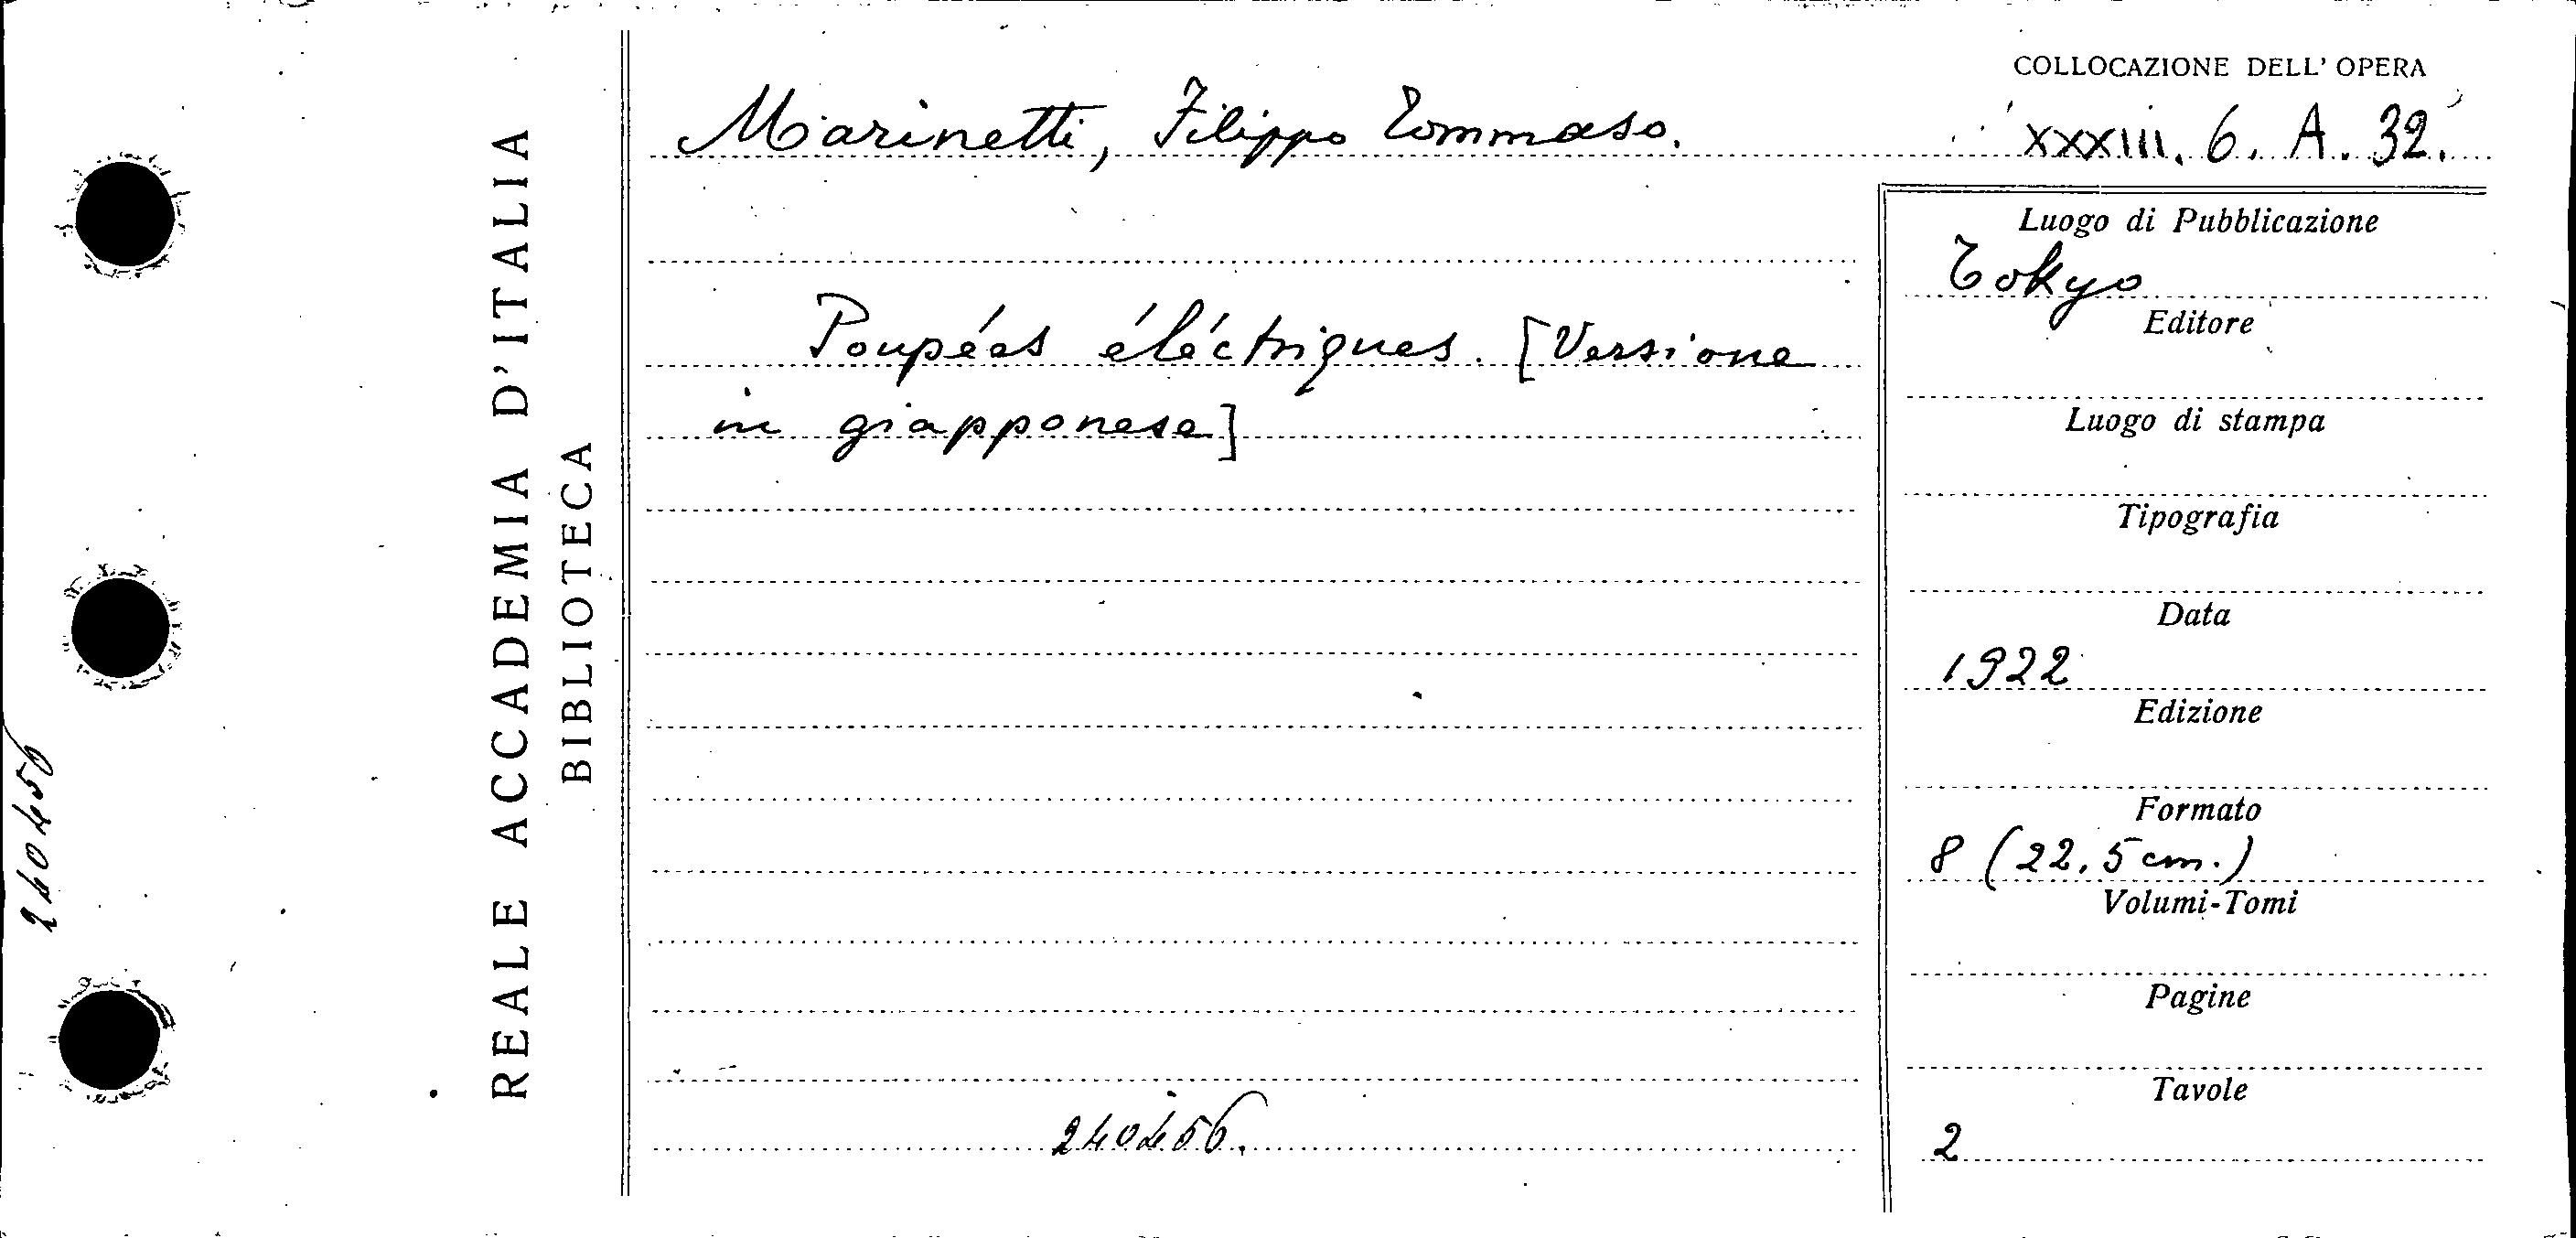 REALE ACCADEMIA D'ITALIA
BIBLIOTECA
240456
Marinetti, Filippo Tommaso.
Poupées éléctriques. [Versione
in giapponese]
240456.
COLLOCAZIONE DELL' OPERA
XXXIII. 6. A. 32.
Luogo di Pubblicazione
Tokyo
Editore
Luogo di stampa
Tipografia
Data
1922
Edizione
Formato
8 (22,5 cm.)
Volumi-Tomi
Pagine
Tavole
2